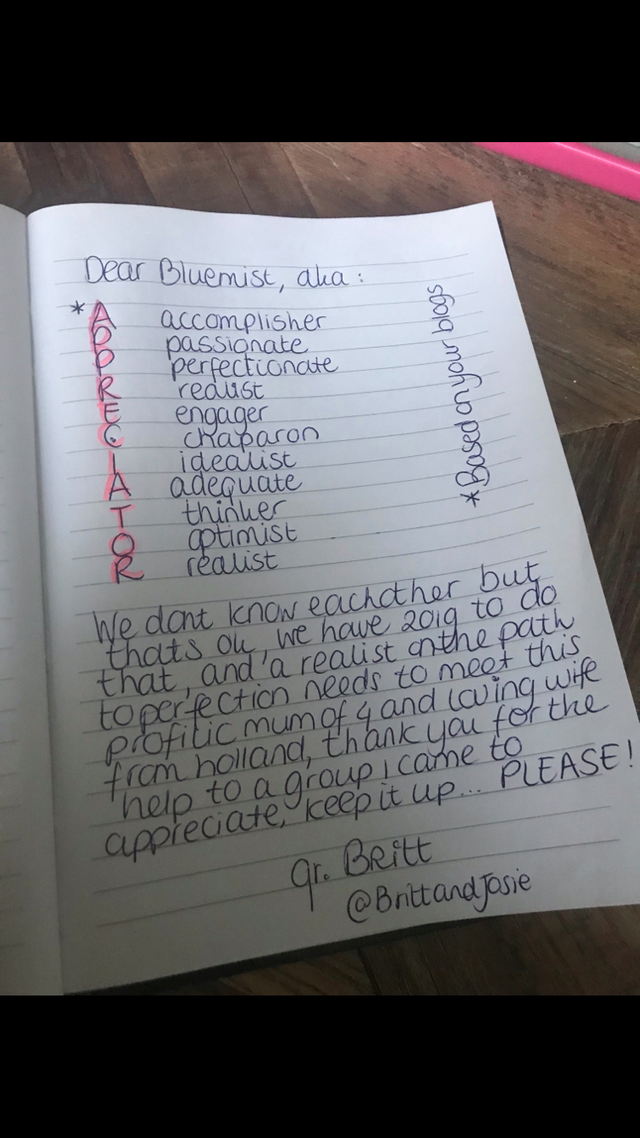 Dear Bluemist, aka:
* A accomplisher
P passionate
P perfectionate
R realist
E engager
C chaparon
I idealist
A adequate
T thinker
O optimist
R realist
*Based on your blogs
We dont know eachother but
thats ok, we have 2019 to do
that, and a realist on the path
to perfection needs to meet this
profilic mum of 4 and loving wife
from holland, thank you for the
help to a group i came to
appreciate, keep it up... PLEASE!
gr. Britt
@BrittandJosie